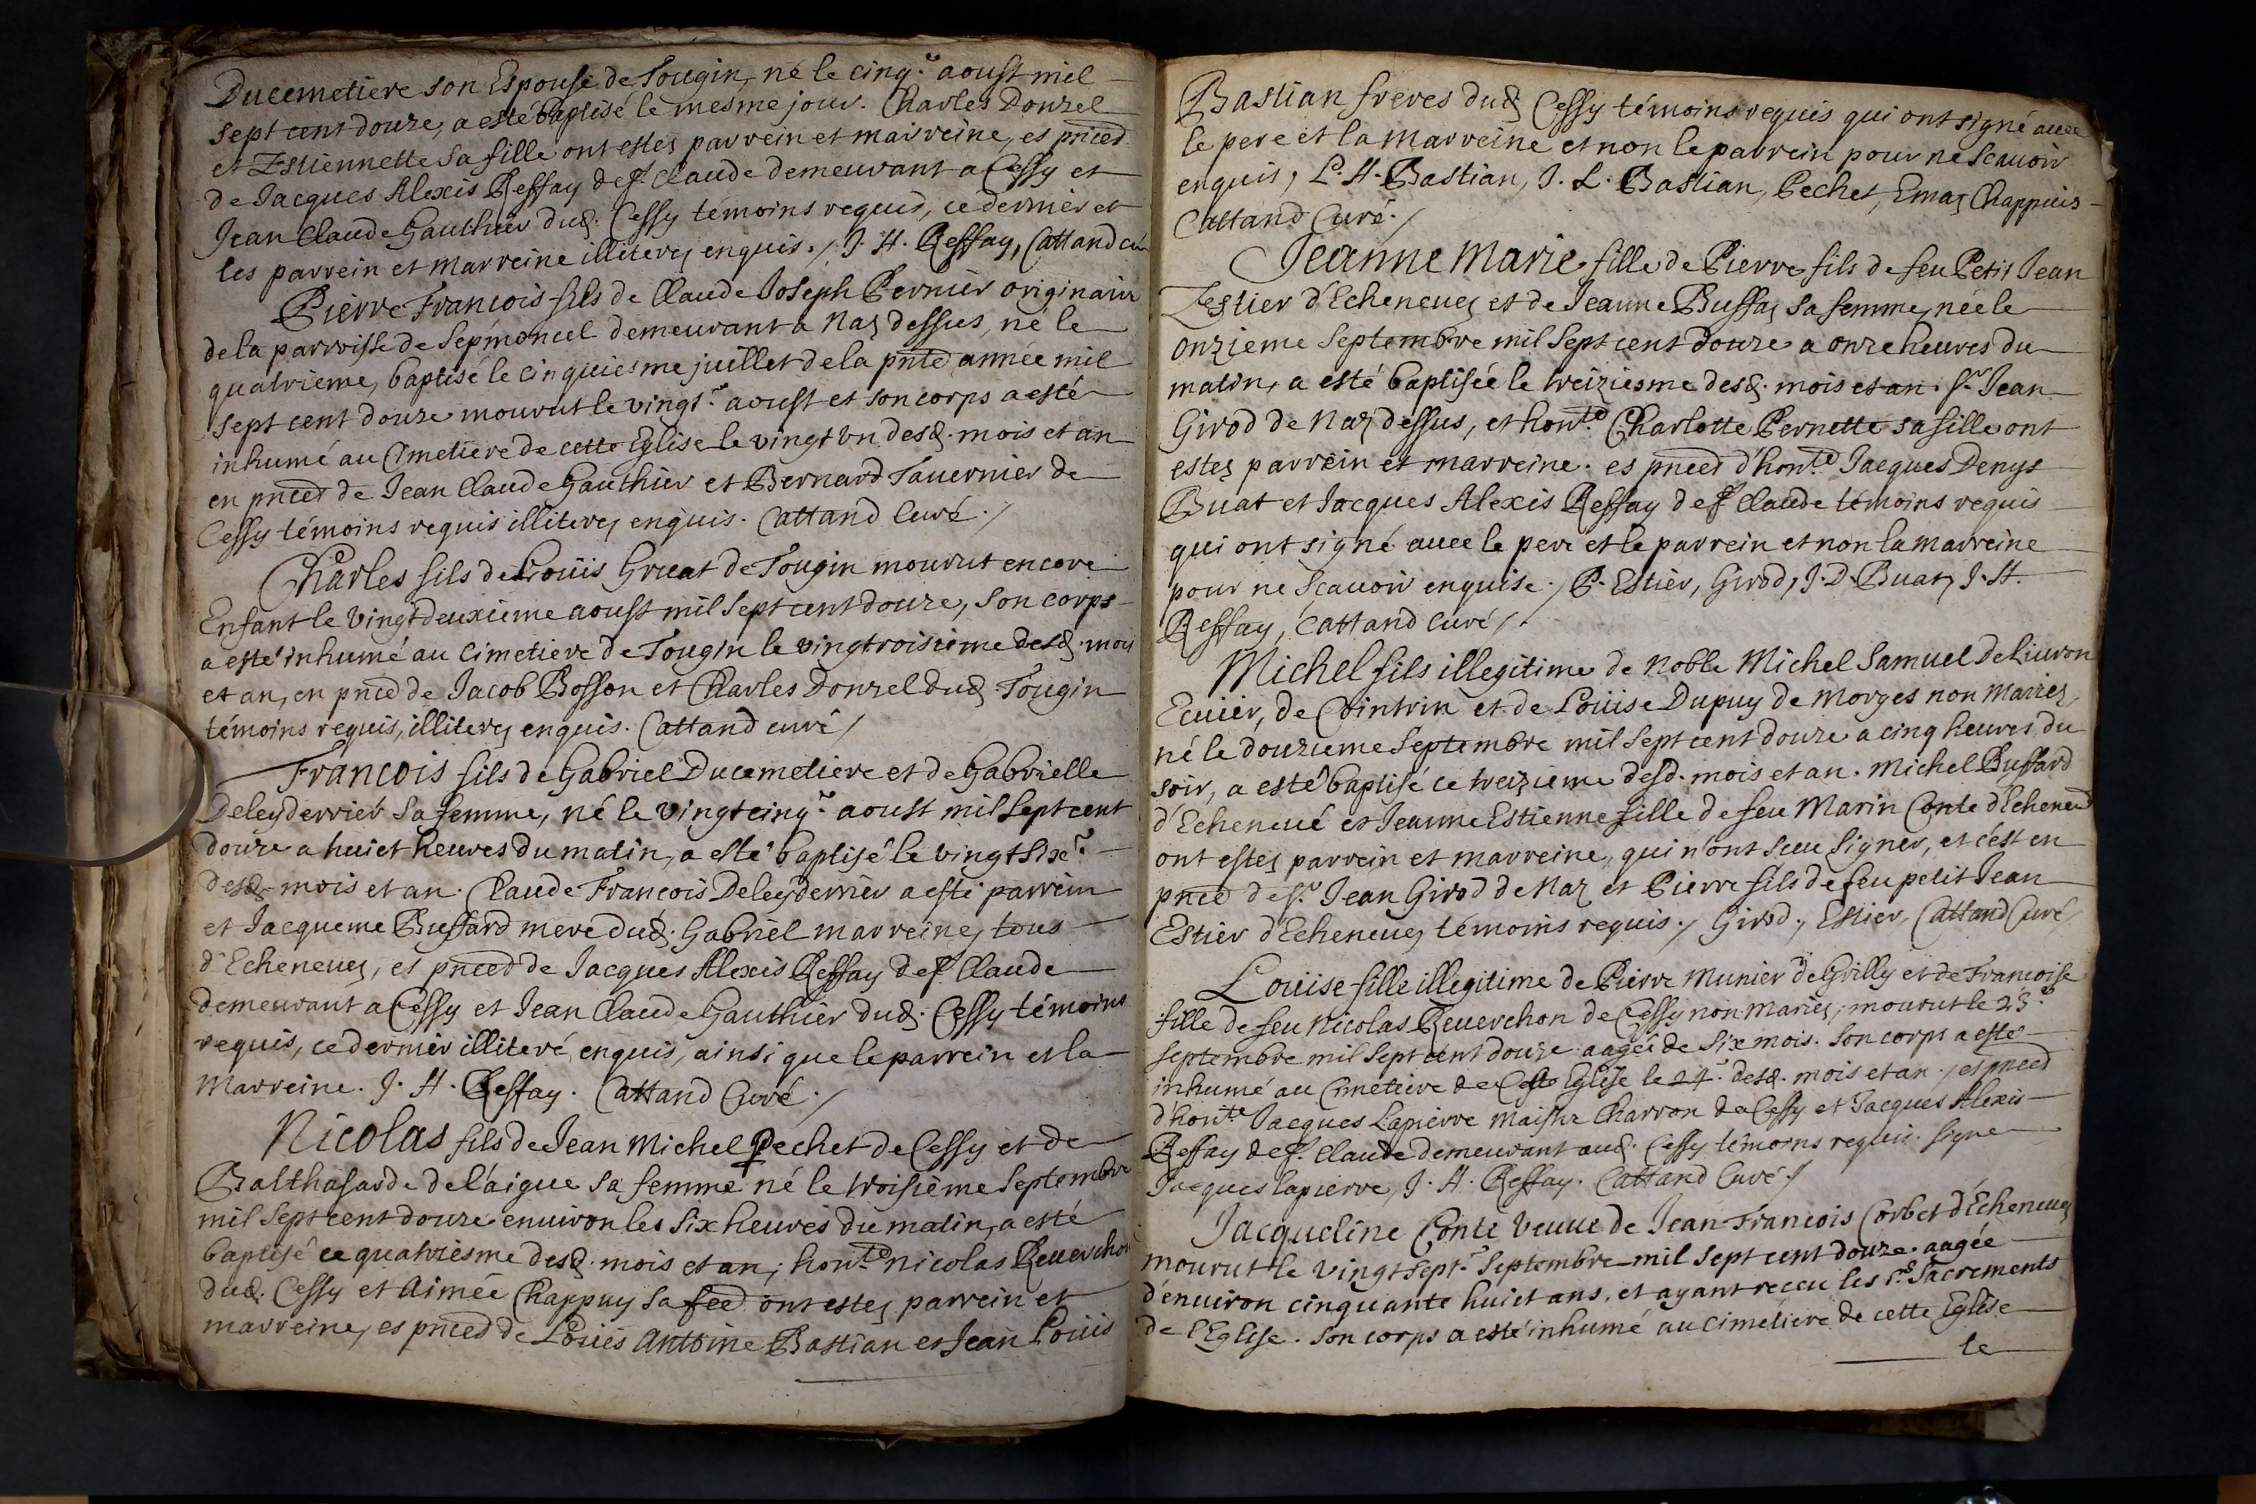 Ducemetiere son Espouse de Tougin, né le cinq.e aoust mil
sept cent douze, a esté baptisé le mesme jour. Charles Donzel
et Estiennette sa fille ont estez parrein et marreine, es pnces
de Jacques Alexis Reffay de f. Claude demeurant a Cessy et
Jean Claude Gauthier dud. Cessy témoins requis, ce dernier et
les parrein et marreine illiterez enquis./ J. A. Reffay, Cattand cu
Pierre Francois fils de Claude Joseph Pernier originaire
de la parroisse de Sepmoncel demeurant a Naz dessus, né le
quatrieme, baptisé le cinquiesme juillet de la pnte année mil
sept cent douze mourut le vingt.e aoust et son corps a esté
inhumé au Cimetiere de cette Eglise le vingt un desd. mois et an
en pnces de Jean Claude Gauthier et Bernard Tavernier de
Cessy témoins requis illiterez enquis. Cattand Curé./
Charles fils de Loüis Gruat de Tougin mourut encore
Enfant le vingt deuxieme aoust mil sept cent douze, son corps
a esté inhumé au cimetiere de Tougin le vingtroisieme desd. mois
et an, en pnce de Jacob Bosson et Charles Donzel dud. Tougin
témoins requis, illiterez enquis. Cattand curé/
Francois fils de Gabriel Ducemetiere et de Gabrielle
Deleyderrier sa femme, né le vingt cinq.e aoust mil sept cent
douze a huict heures du matin, a esté baptisé le vingt six.e
desd. mois et an. Claude Francois Deleyderrier a esté parrein
et Jacqueme Buffard mere dud. Gabriel marreine, tous
d'Echenevez, es pnces de Jacques Alexis Reffay de f. Claude
demeurant a Cessy et Jean Claude Gauthier dud. Cessy témoins
requis, ce dernier illiteré enquis, ainsi que le parrein et la
Marreine. J. A. Reffay. Cattand Curé./
Nicolas fils de Jean Michel Pechet de Cessy et de
Balthasarde de l'aigue sa femme né le troisième Septembre
mil sept cent douze environ les six heures du matin, a esté
baptisé ce quatriesme desd. mois et an; hon.te Nicolas Reverchon
dud. Cessy et Aimée Chappuy sa fée ont estez parrein et
marreine, es pnces de Loüis Antoine Bastian et Jean Loüis
Bastian freres dud. Cessy témoins requis qui ont signé avec
le pere et la marreine et non le parrein pour ne scavoir
enquis, L. A. Bastian, J. L. Bastian, Pechet, Emaz Chappuis
Cattand Curé./
Jeanne Marie fille de Pierre fils de feu Petit Jean
Estier d'Echenevez et de Jeanne Buffaz sa femme, née le
onzieme Septembre mil sept cent douze a onze heures du
matin, a esté baptisée le treiziesme desd. mois et an. S.r Jean
Girod de Naz dessus, et hon.te Charlotte Pernette sa fille ont
estez parrein et marreine. es pnces d'hon.te Jacques Denys
Buat et Jacques Alexis Reffay de f Claude témoins requis
qui ont signé avec le pere et le parrein et non la marreine
pour ne Scavoir enquise./ P. Estier, Girod, J. D. Buat, J. A.
Reffay, Cattand curé/.
Michel fils illegitime de Noble Michel Samuel de Livron
Ecuier, de Cointrin et de Loüise Dupuy de Morges non Mariez,
né le douzieme Septembre mil sept cent douze a cinq heures du
soir, a esté baptisé ce treizieme desd. mois et an. Michel Buffard
d'Echenevé et Jeanne Estienne fille de feu Marin Conte d'Echenevé
ont estez parrein et marreine, qui n'ont sceu signer, et c'est en
pnce de S.r Jean Girod de Naz et Pierre fils de feu petit Jean
Estier d'Echenevez témoins requis./ Girod, Estier, Cattand Curé/
Loüise fille illegitime de Pierre Munier de Grilly et de Francoise
fille de feu Nicolas Reverchon de Cessy non Mariez; mourut le 23.e
septembre mil sept cent douze aagée de six mois. Son corps a esté
inhumé au Cimetiere de Cette Eglise le 24.e desd. mois et an. / es pnces
d'hon.te Jacques Lapierre Maistre Charron de Cessy et Jacques Alexis
Reffay de f. Claude demeurant aud. Cessy témoins requis. signe
Jacques lapierre, J. A. Reffay. Cattand Curé./
Jacqueline Conte veuve de Jean Francois Corbet d'Echenevez
mourut le vingt sept.e Septembre mil sept cent douze. aagée
d'environ cinquante huict ans, et ayant receu les S.ts Sacrements
de l'Eglise. Son corps a esté inhumé au cimetiere de cette Eglise
le